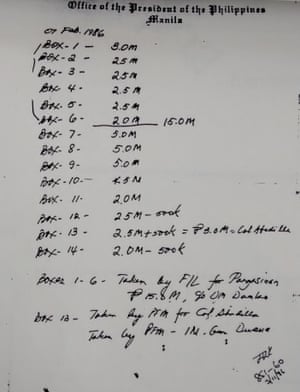 Office of the President of the Philippines
Manila
07 Feb. 1986
Box - 1 - 3.0M
Box - 2 - 2.5M
Box - 3 - 2.5M
Box 4 - 2.5M
Box. 5 - 2.5M
Box - 6 - 2.0M 15.0M
Box - 7 - 5.0M
Box - 8 - 5.0M
Box - 9 - 5.0M
Box - 10 -
Box 11 - 2.0M
Box - 12 - 2.5M - 500k
Box - 13 - 2.5M + 500k = ₱3.0M - Col Abadilla
Box - 14 - 2.0M - 500k
Boxes 1-6 - Taken by F/L for Pangasinan
₱ 15.0M, % Demetrio
Box 13 - Taken by for Col Abadilla
Taken by - 1M. Gen